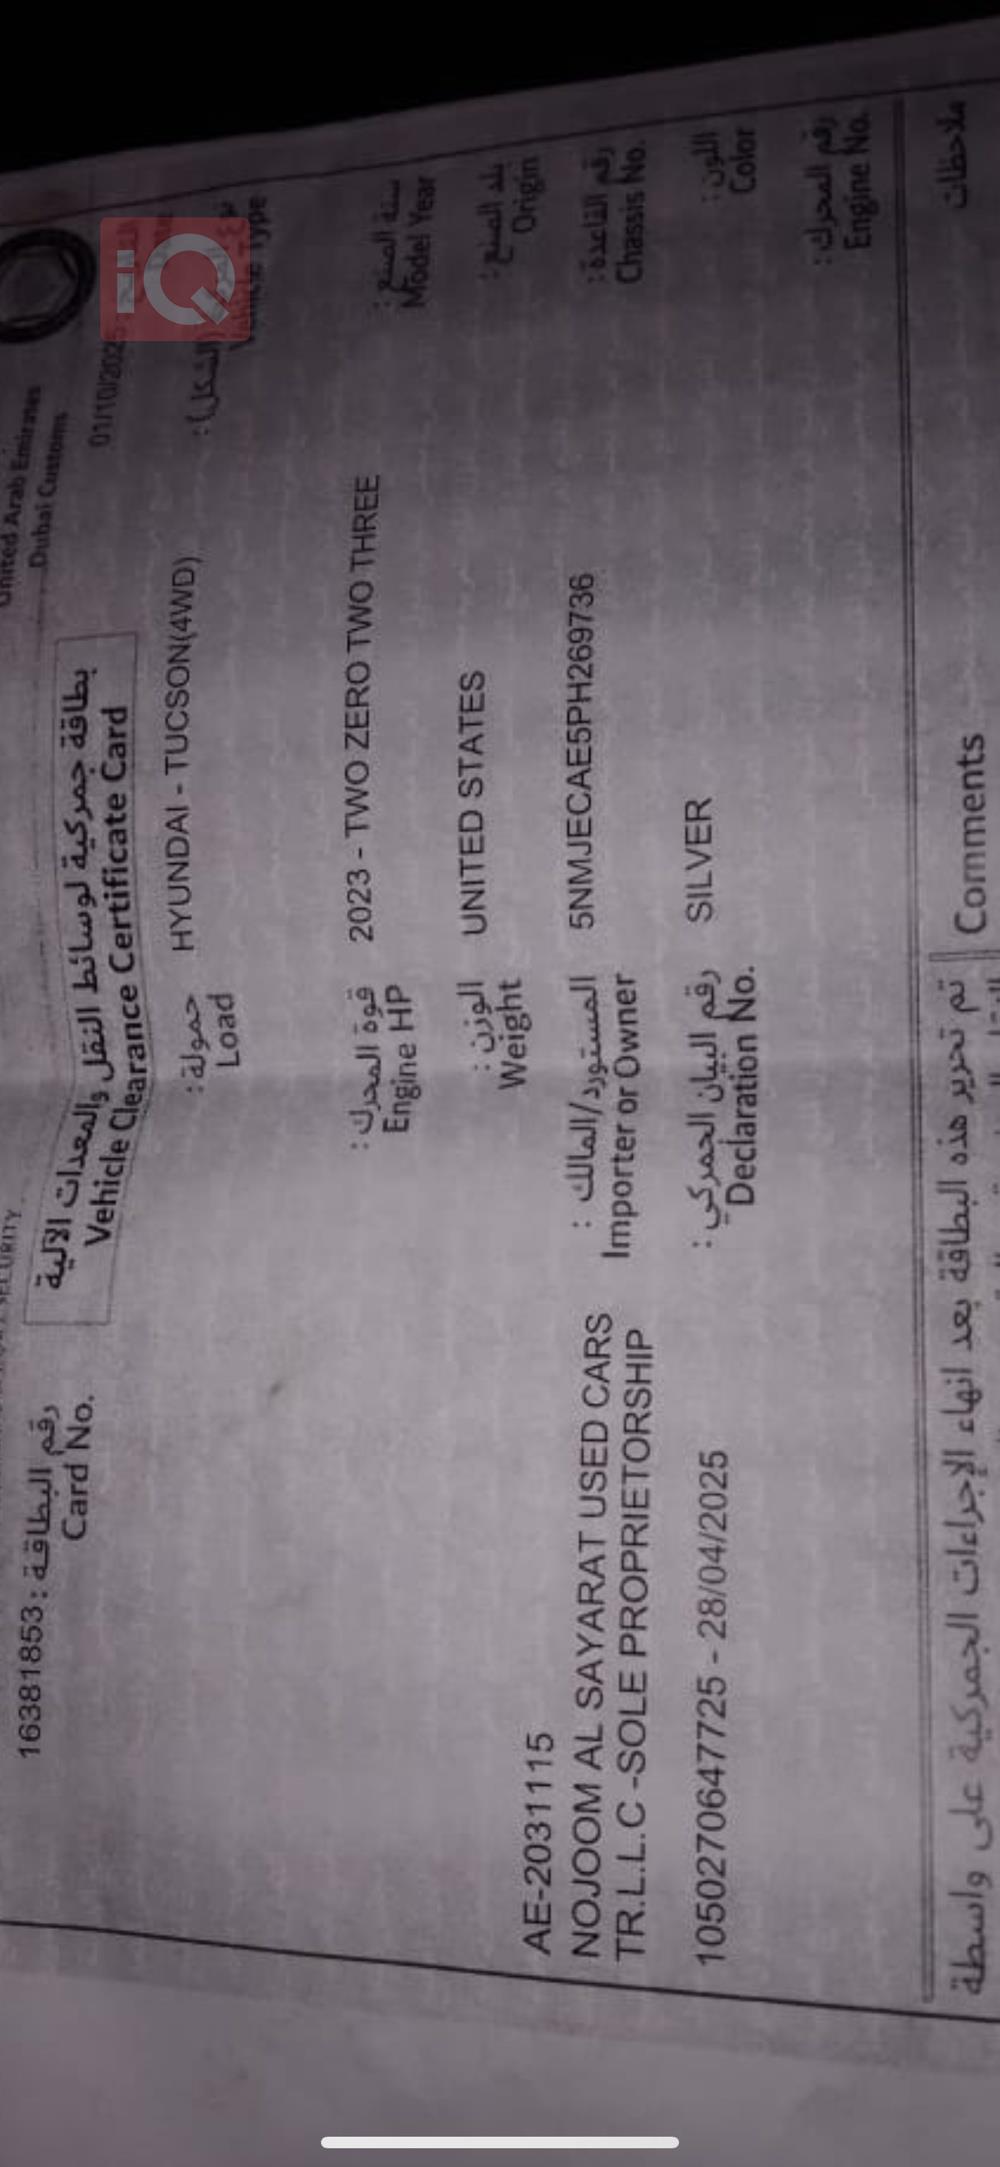 United Arab Emirates
Dubai Customs
SECURITY
16381853 : رقم البطاقة
Card No.
بطاقة جمركية لوسائط النقل والمعدات الآلية
Vehicle Clearance Certificate Card
01/10/2025
iQ
حمولة :
Load
HYUNDAI - TUCSON(4WD)
(الشكل) :
Type
قوة المحرك :
Engine HP
2023 - TWO ZERO TWO THREE
سنة الصنع :
Model Year
الوزن :
Weight
UNITED STATES
بلد الصنع :
Origin
AE-2031115
NOJOOM AL SAYARAT USED CARS
TR.L.L.C -SOLE PROPRIETORSHIP
المستورد/المالك :
Importer or Owner
5NMJECAE5PH269736
رقم القاعدة :
Chassis No.
1050270647725 - 28/04/2025
رقم البيان الجمركي :
Declaration No.
SILVER
اللون :
Color
رقم المحرك :
Engine No.
Comments
ملاحظات
تم تحرير هذه البطاقة بعد انهاء الإجراءات الجمركية على واسطة